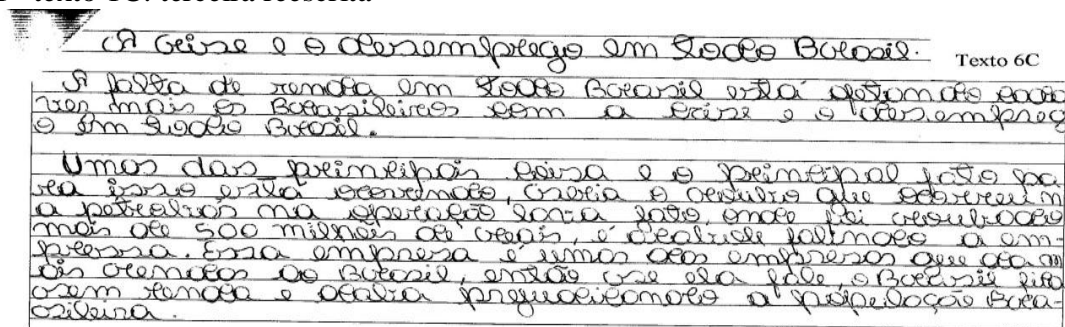 A crise e o desemprego em todo Brasil.
Texto 6C
A falta de renda em todo Brasil está afetando cada
vez mais os Brasileiros com a crise e o desempreg
o em todo Brasil.
Umas das principais coisa e o principal fato pa
ra isso esta ocorrendo, seria o roubo que ocorreu n
a petrobras na operação lava jato, onde foi roubado
mais de 500 milhões de reais, e acabou falindo a em-
presa. Essa empresa é umas das empresas que da m
ais rendas ao Brasil, então se ela fale, o Brasil fica
sem renda e acaba prejudicando a população Bra-
sileira.